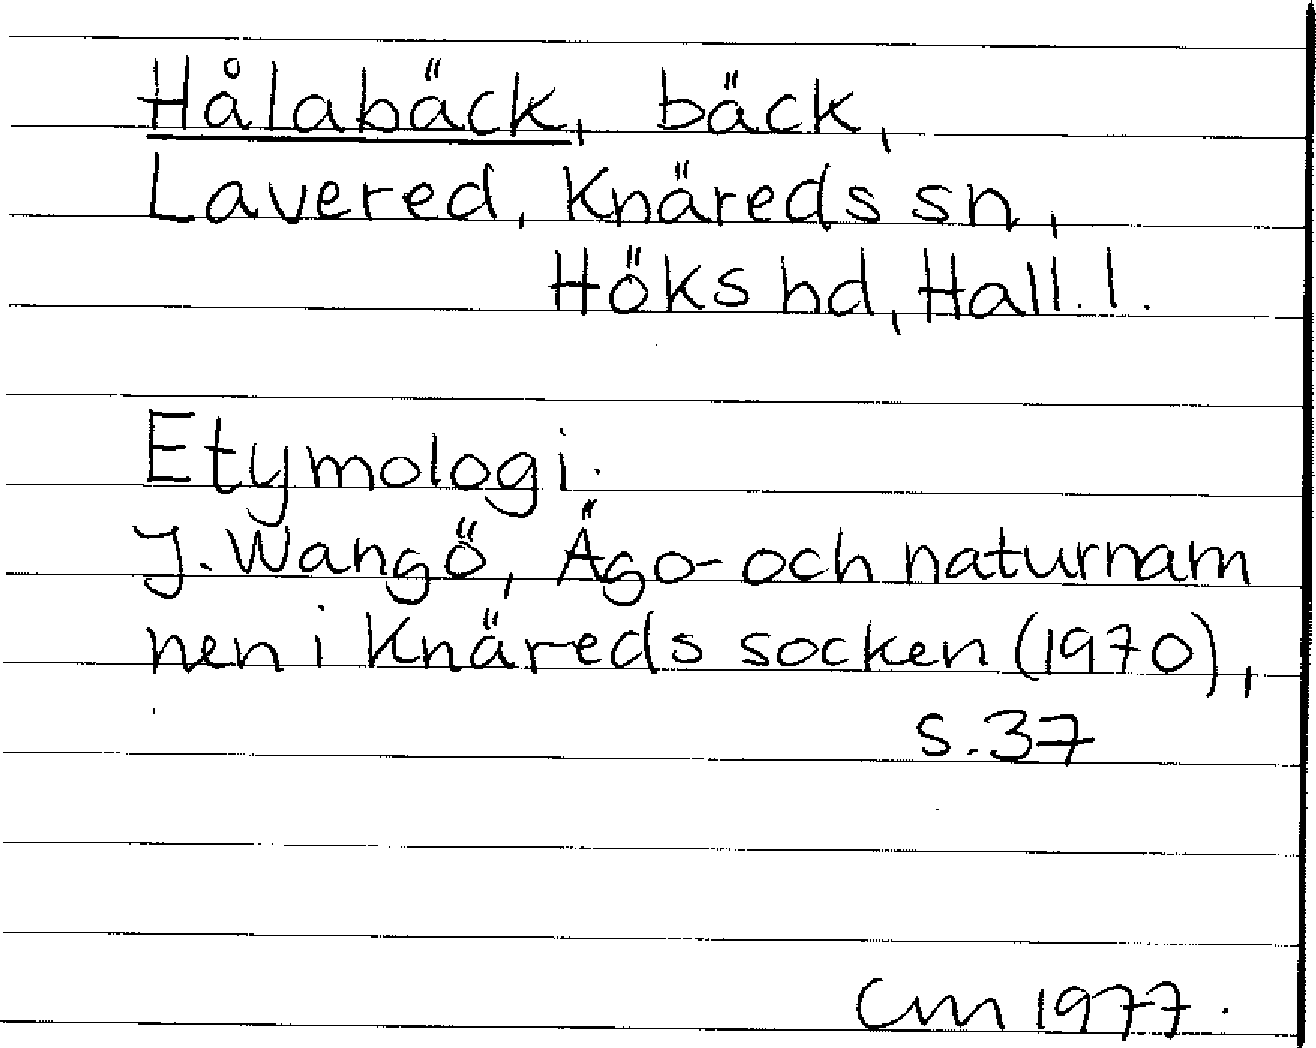 Hålabäck, bäck,
Lavered, Knäreds sn,
Höks hd, Hall. l.
Etymologi.
J. Wangö, Ägo- och naturnam
nen i Knäreds socken (1970),
s. 37
Cm 1977.